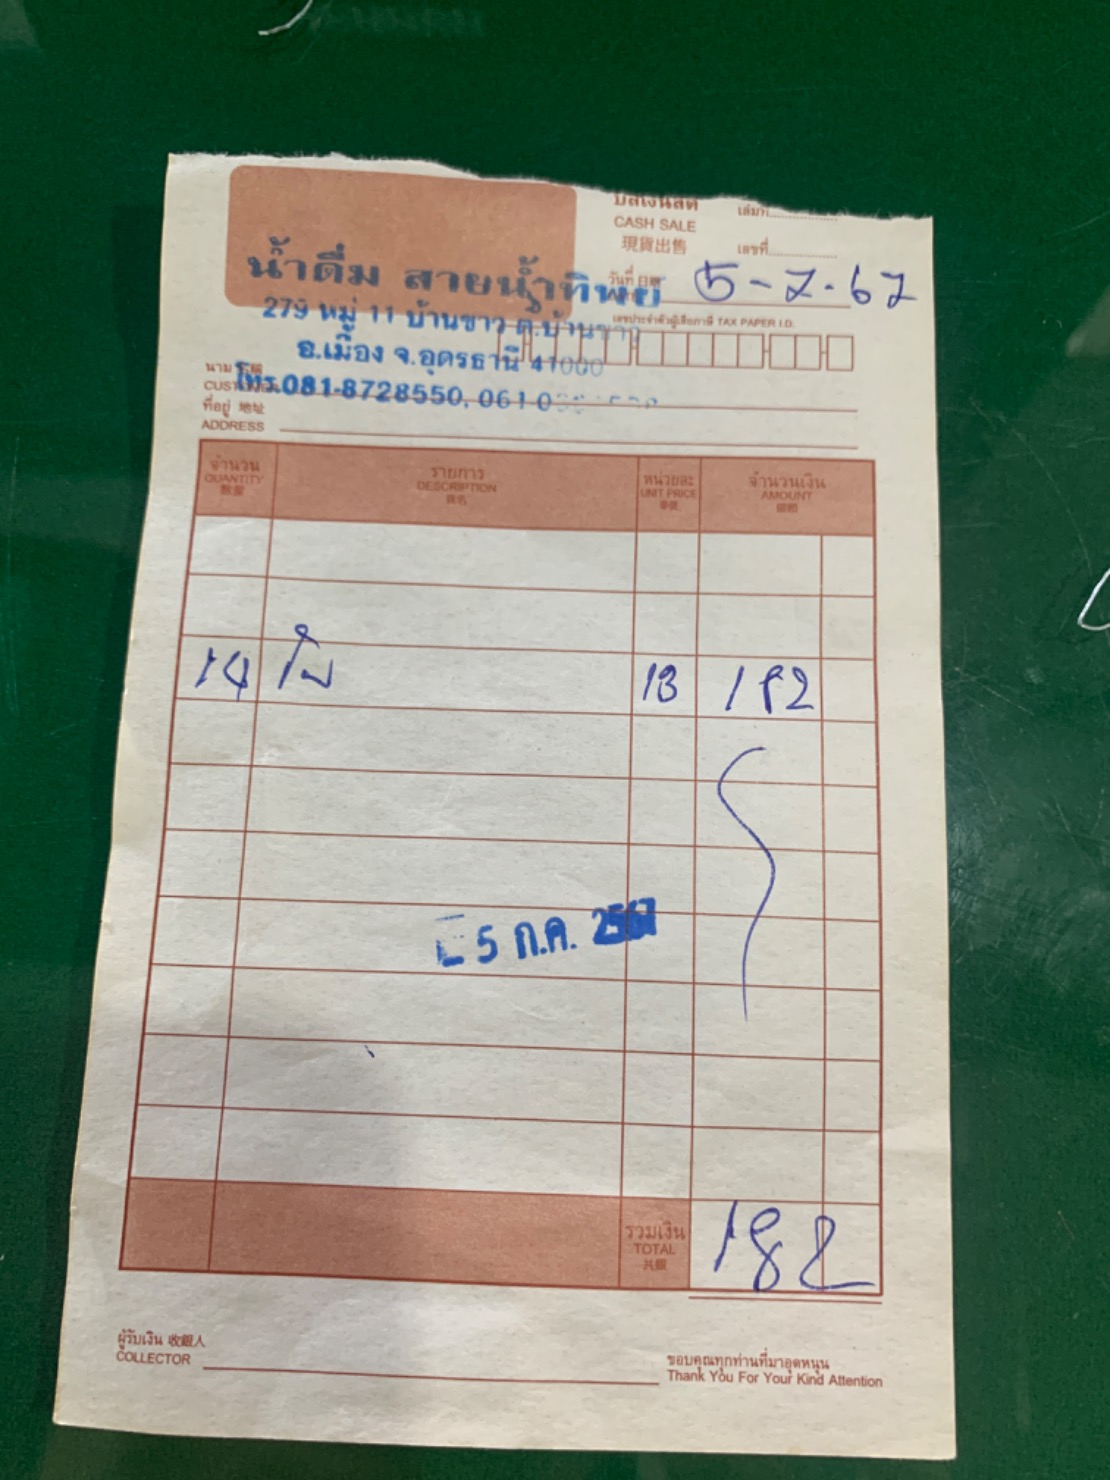 บิลเงินสด
CASH SALE
現貨出售
เล่มที่
เลขที่
วันที่ 日期 5-7-67
น้ำดื่ม สายน้ำทิพย์
279 หมู่ 11 บ้านขาว ต.บ้านขาว
อ.เมือง จ.อุดรธานี 41000
โทร.081-8728550, 061-0
เลขประจำตัวผู้เสียภาษี TAX PAPER I.D.
นาม
CUSTOMER
ที่อยู่ 地址
ADDRESS
จำนวน รายการ หน่วยละ จำนวนเงิน
QUANTITY DESCRIPTION UNIT PRICE AMOUNT
數量 貨名 單價 銀額
14 ใบ 13 182
5 ก.ค. 2567
รวมเงิน 182
TOTAL
共銀
ผู้รับเงิน 收銀人
COLLECTOR
ขอบคุณทุกท่านที่มาอุดหนุน
Thank You For Your Kind Attention